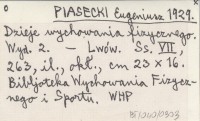 PIASECKI Eugeniusz 1929.
Dzieje wychowania fizycznego.
Wyd. 2. — Lwów. Ss. VII
263, il., okł., cm 23 x 16.
Bibljoteka Wychowania Fizycz-
nego i Sportu. WHP